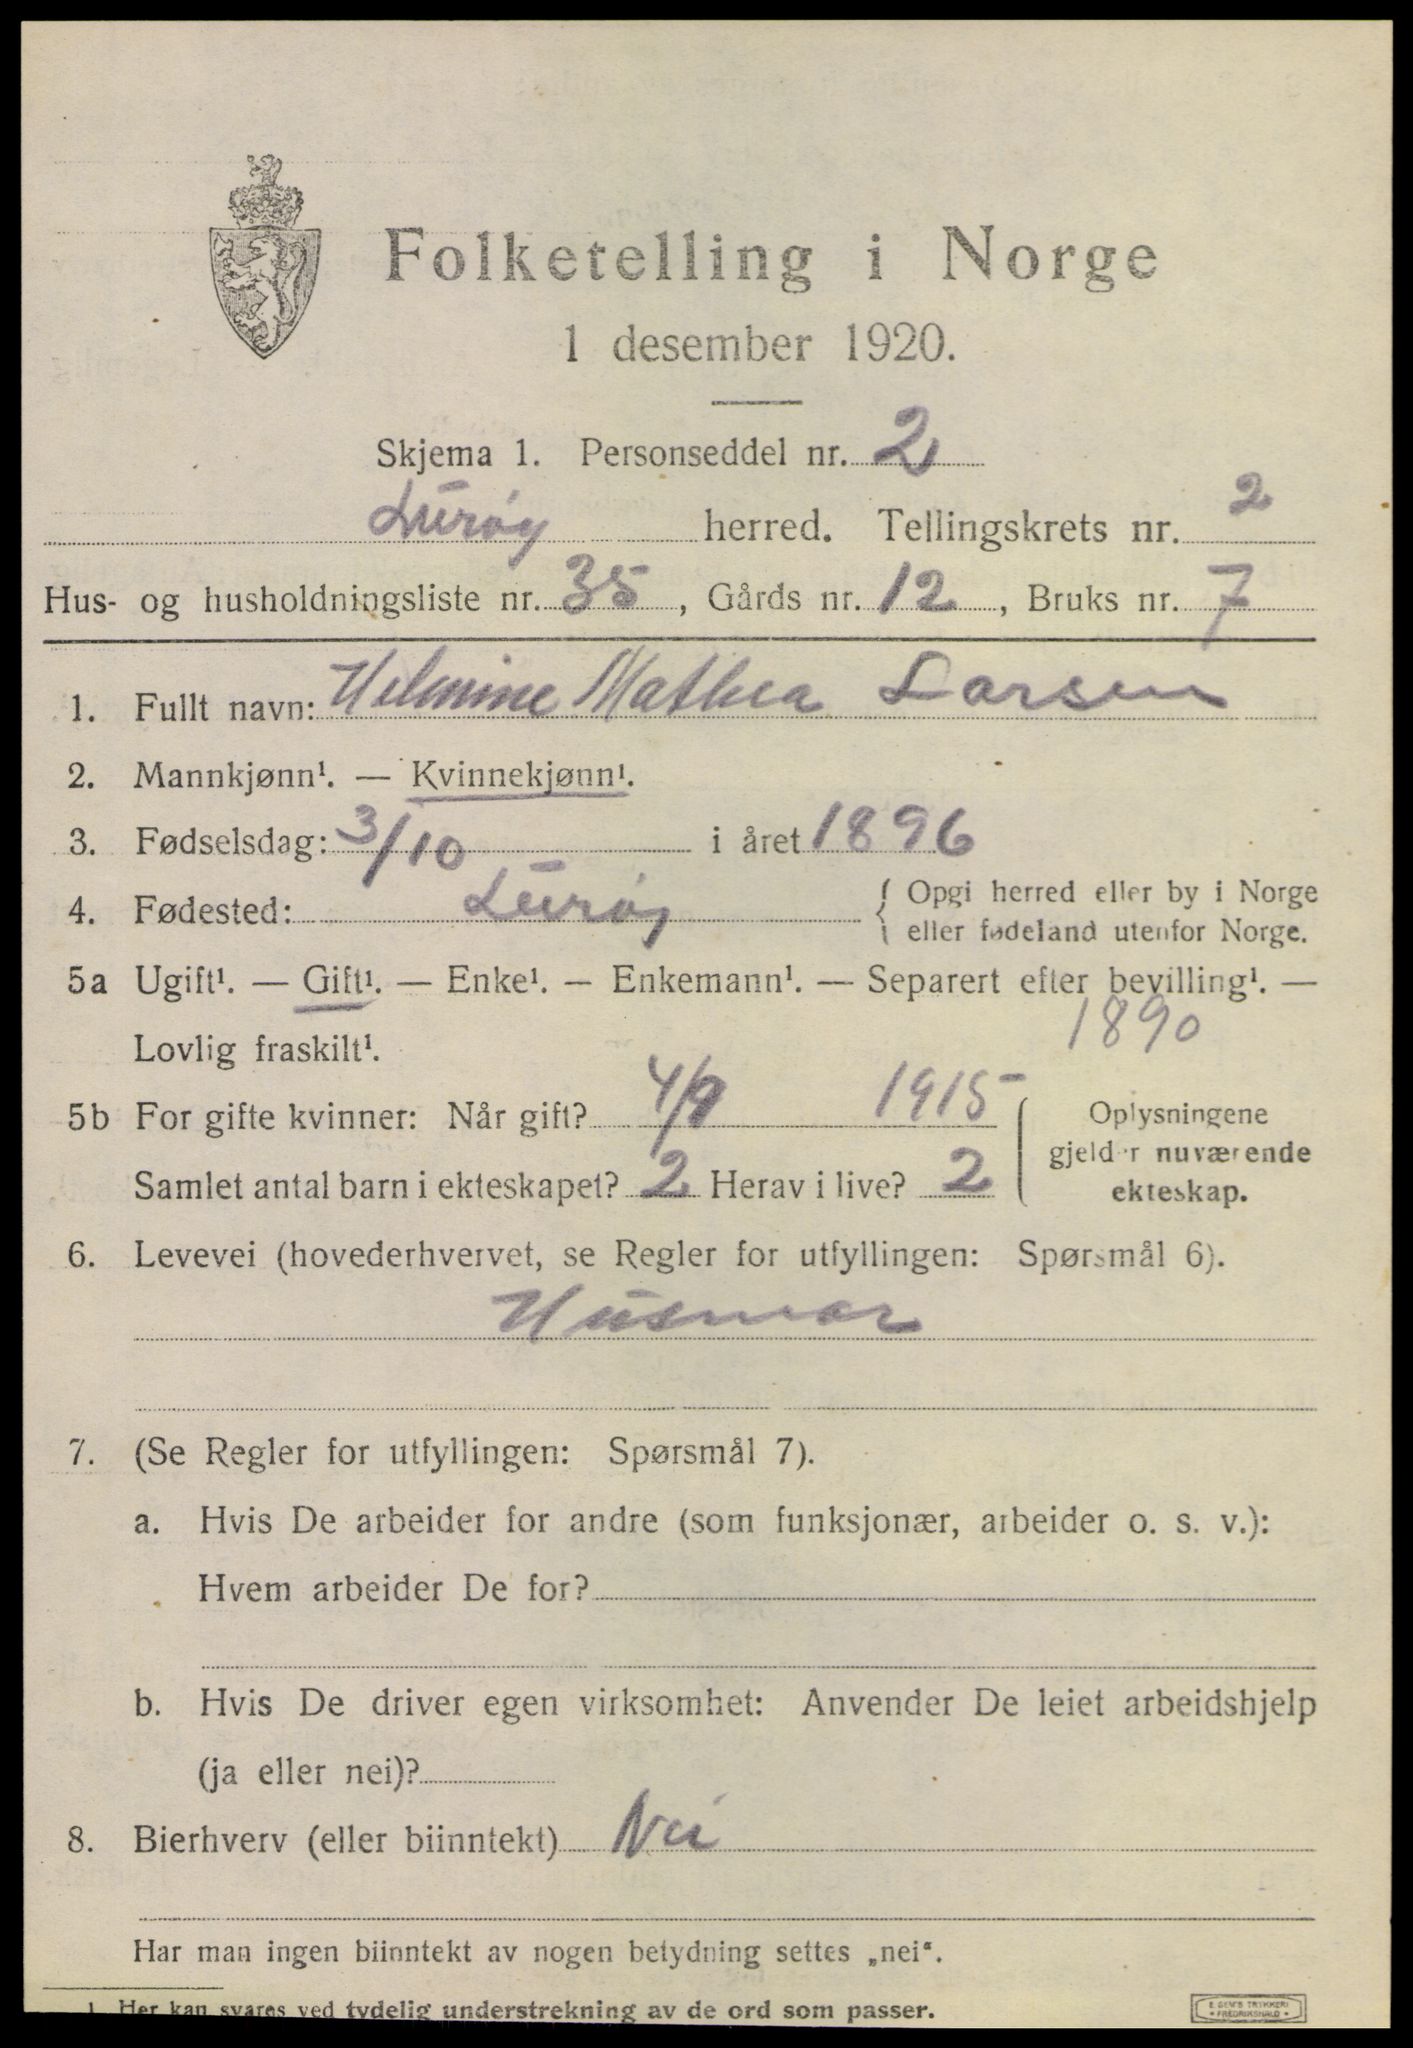 Folketelling i Norge
1 desember 1920.
Skjema 1. Personseddel nr. 2
Lurøy herred. Tellingskrets nr. 2
Hus- og husholdningsliste nr. 35, Gårds nr. 12, Bruks nr. 7
1. Fullt navn: Helmine Mathea Larsen
2. Mannkjønn¹. — Kvinnekjønn¹.
3. Fødselsdag: 3/10 i året 1896
4. Fødested: Lurøy { Opgi herred eller by i Norge
eller fødeland utenfor Norge.
5a Ugift¹. — Gift¹. — Enke¹. — Enkemann¹. — Separert efter bevilling¹. —
Lovlig fraskilt¹. 1890
5b For gifte kvinner: Når gift? 4/9 1915 { Oplysningene
gjelder nuværende
Samlet antal barn i ekteskapet? 2 Herav i live? 2 ekteskap.
6. Levevei (hovederhvervet, se Regler for utfyllingen: Spørsmål 6).
Husmor
7. (Se Regler for utfyllingen: Spørsmål 7).
a. Hvis De arbeider for andre (som funksjonær, arbeider o. s. v.):
Hvem arbeider De for?
b. Hvis De driver egen virksomhet: Anvender De leiet arbeidshjelp
(ja eller nei)?
8. Bierhverv (eller biinntekt) Nei
Har man ingen biinntekt av nogen betydning settes „nei“.
1. Her kan svares ved tydelig understrekning av de ord som passer.
E. SEM'S TRYKKERI
• FREDRIKSHALD •